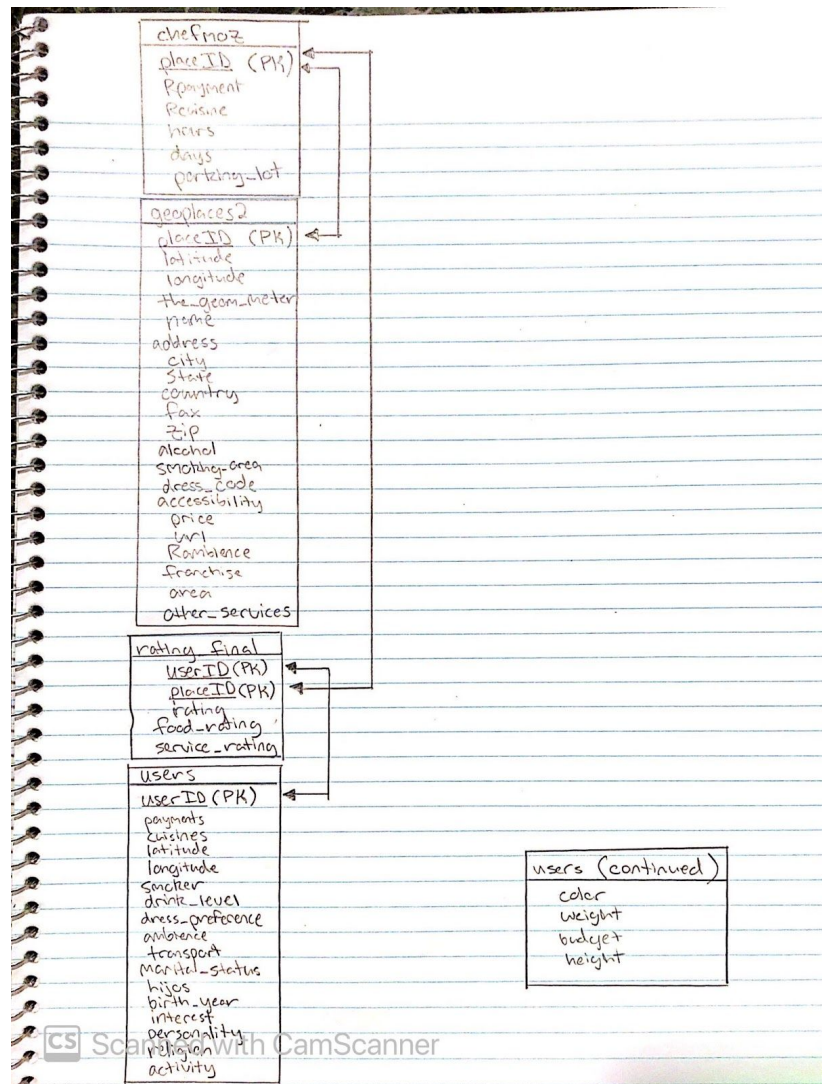 chefmoz
placeID (PK)
Rpayment
Rcuisine
hours
days
parking_lot
geoplaces2
placeID (PK)
latitude
longitude
the_geom_meter
name
address
city
State
country
fax
zip
alcohol
smoking_area
dress_code
accessibility
price
url
Rambience
franchise
area
other_services
rating_final
userID (PK)
placeID (PK)
rating
food_rating
service_rating
users
userID (PK)
payments
cuisines
latitude
longitude
smoker
drink_level
dress_preference
ambience
transport
marital_status
hijos
birth_year
interest
personality
religion
activity
users (continued)
color
weight
budget
height
CS Scanned with CamScanner